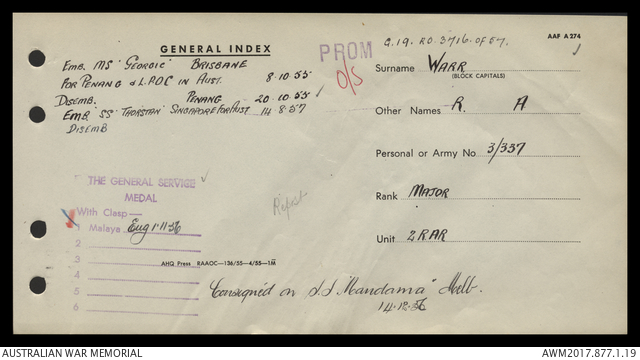 GENERAL INDEX
AAF A 274
PROM
O/S
C.19. RO. 3716. OF 57.
EMB. MS 'GEORGIC' BRISBANE
FOR PENANG & L.POC IN AUST. 8.10.55
DISEMB. PENANG 20.10.55
EMB 'SS' 'THORSTAN' SINGAPORE FOR AUST 14.8.57
DISEMB
Surname WARR
(BLOCK CAPITALS)
Other Names R. A
Personal or Army No. 3/337
Rank MAJOR
Unit 2 RAR
THE GENERAL SERVICE
MEDAL
With Clasp—
1 Malaya Eng 1.11.56
2
3
4
5
6
AHQ Press RAAOC—136/55—4/55—1M
Consigned on S.S. "Mandama" Melb.
14.12.56
AUSTRALIAN WAR MEMORIAL
AWM2017.877.1.19